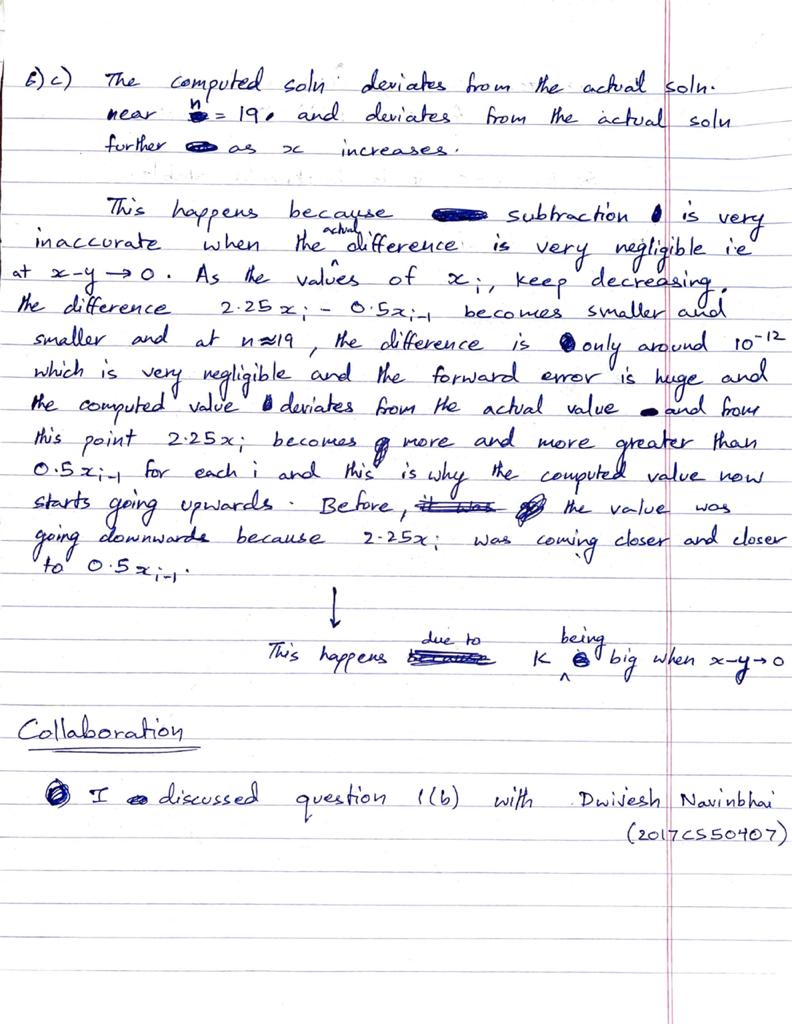 6) c) The computed soln deviates from the actual soln.
near n = 19. and deviates from the actual soln
further as x increases.
This happens because subtraction is very
inaccurate when the actual difference is very negligible i.e
at x-y → 0. As the values of xᵢ, keep decreasing,
the difference 2.25xᵢ - 0.5xᵢ₋₁ becomes smaller and
smaller and at n≈19, the difference is only around 10⁻¹²
which is very negligible and the forward error is huge and
the computed value deviates from the actual value and from
this point 2.25xᵢ becomes more and more greater than
0.5xᵢ₋₁ for each i and this is why the computed value now
starts going upwards. Before, the value was
going downwards because 2.25xᵢ was coming closer and closer
to 0.5xᵢ₋₁.
↓
This happens due to K being big when x-y→0
Collaboration
I discussed question 1(b) with Dwivesh Navinbhai
(2017CS50407)